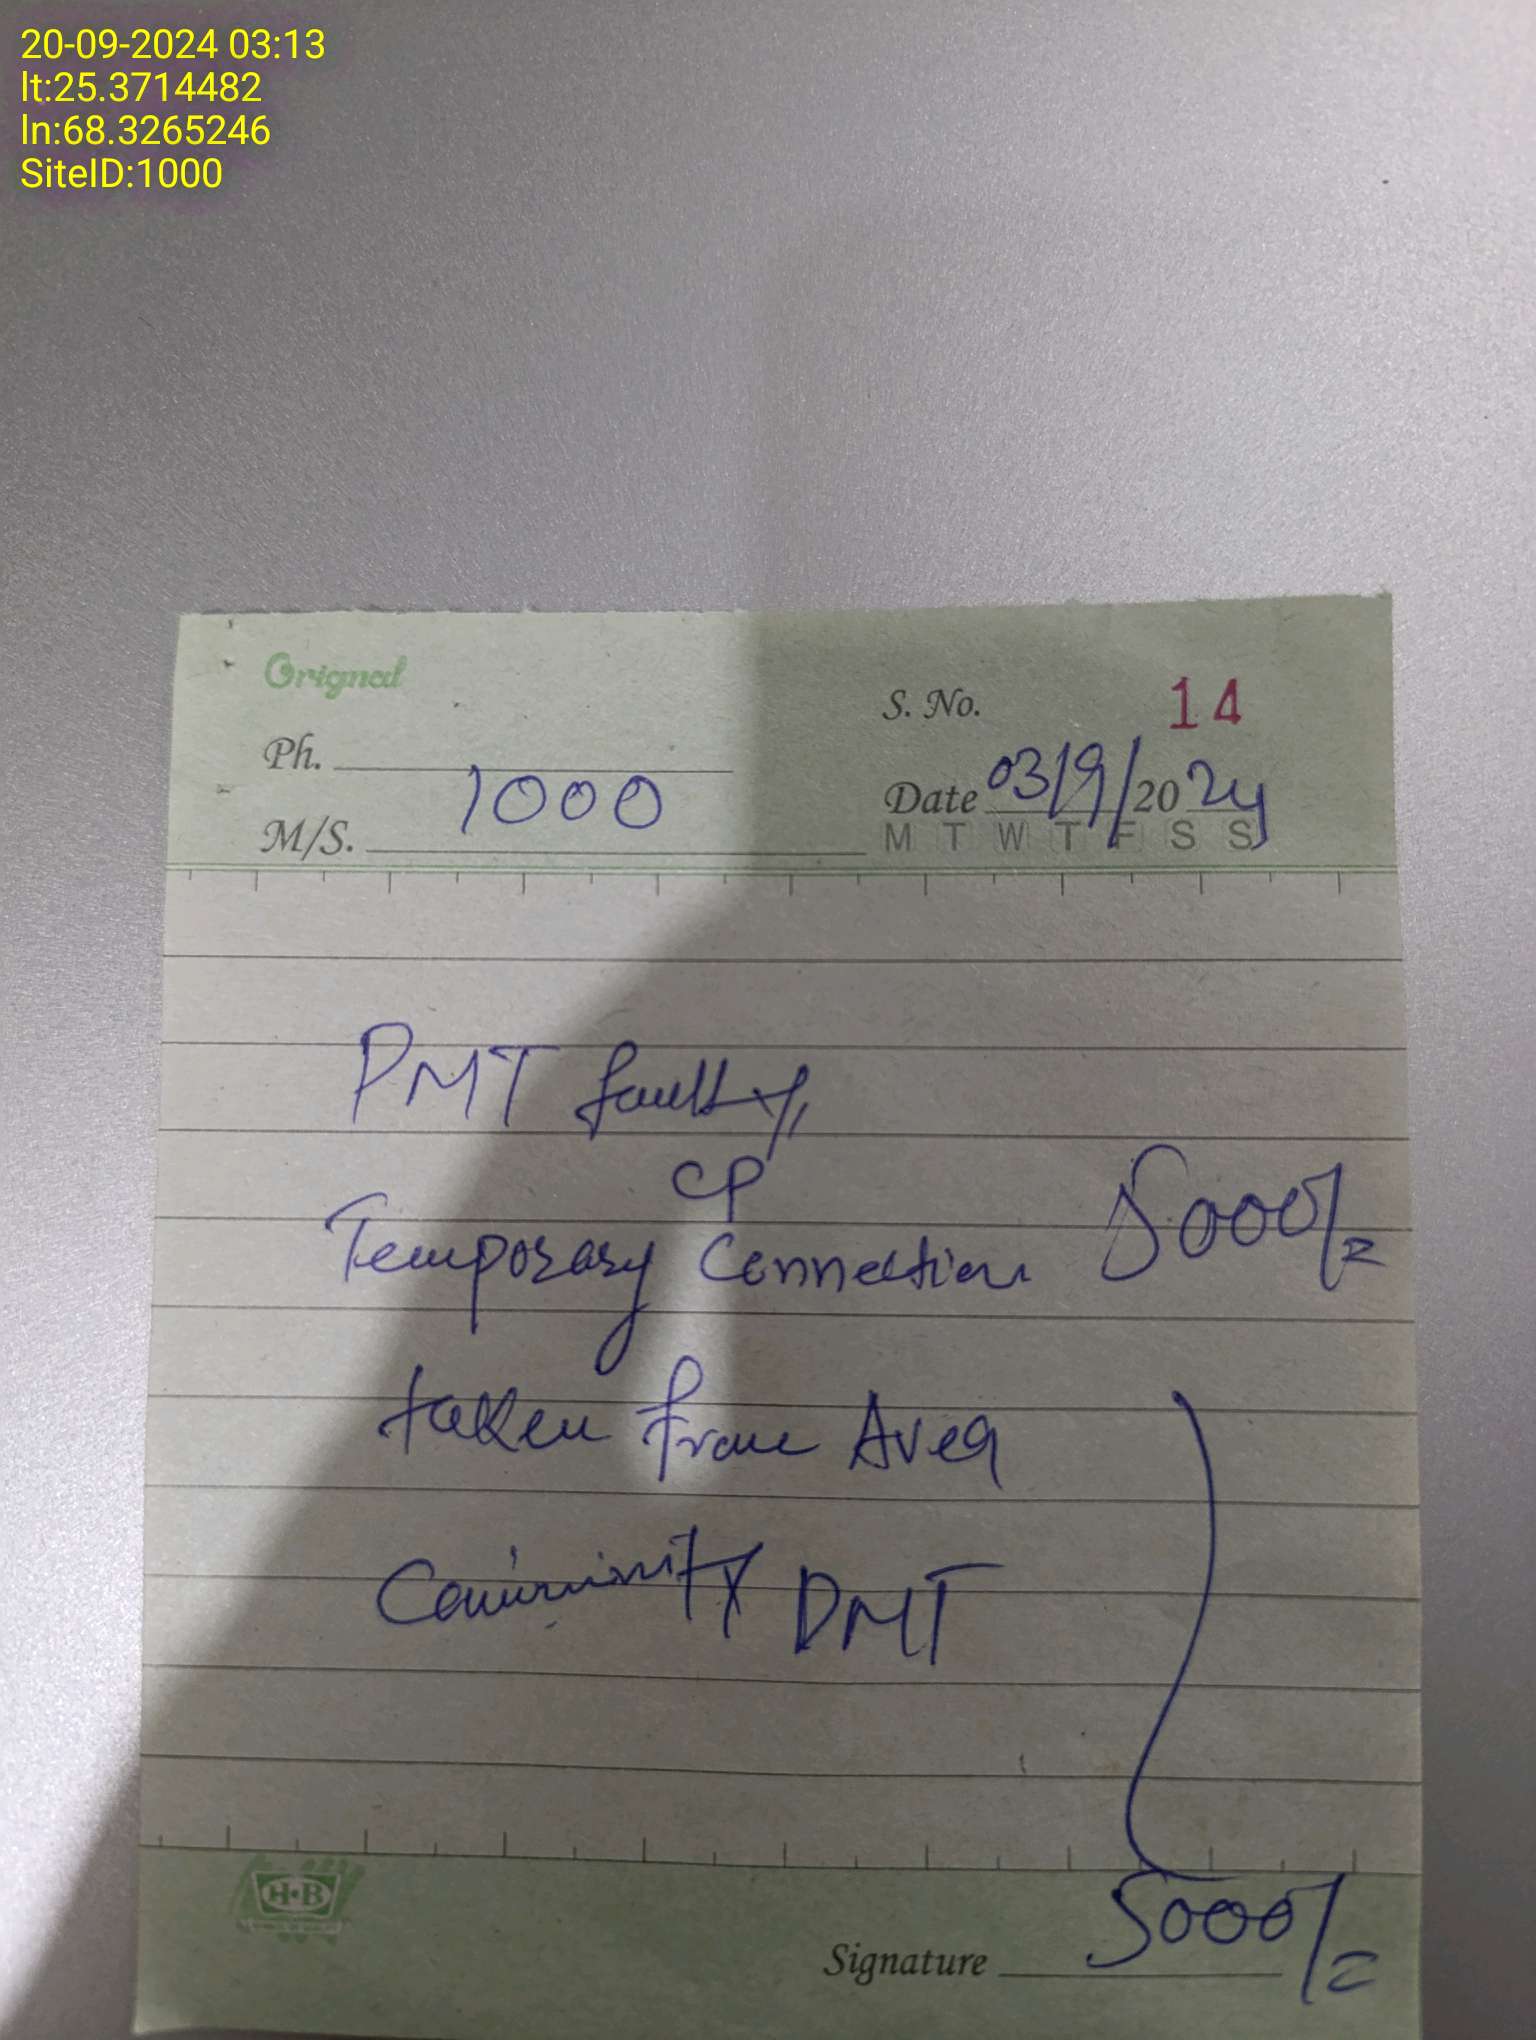 20-09-2024 03:13
lt:25.3714482
ln:68.3265246
SiteID:1000
Orignal
S. No. 14
Ph.
Date 03/9/2024
M/S. 1000
M T W T F S S
PMT faulty,
CP
Temporary Connection 5000/=
taken from Area
Community PMT
H·B
Signature 5000/=